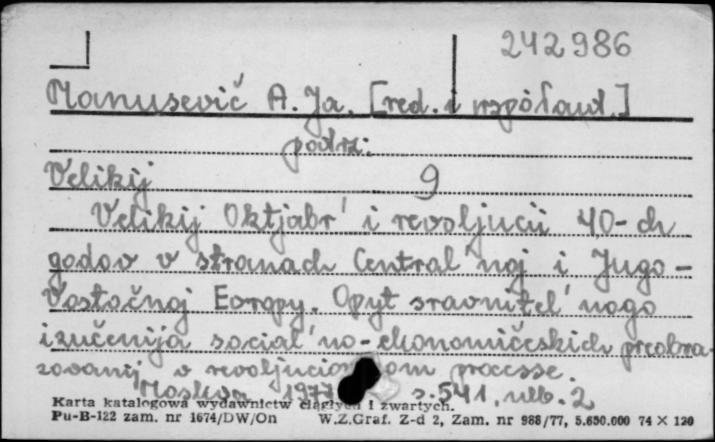 242986
Manusevič A. Ja. [red. i współaut.]
podrz:
Velikij 9
Velikij Oktjabr' i revoljucii 40-ch
godov v stranach Central'noj i Jugo-
Vostočnoj Evropy. Opyt sravnitel'nogo
izučenija social'no-ekonomičeskich preobra-
zovanij v revoljucionnom processe.
Moskva 1977 s. 541, nlb. 2
Karta katalogowa wydawnictw ciągłych i zwartych.
Pu-B-122 zam. nr 1674/DW/On W.Z.Graf. Z-d 2, Zam. nr 988/77, 5.650.000 74 X 120